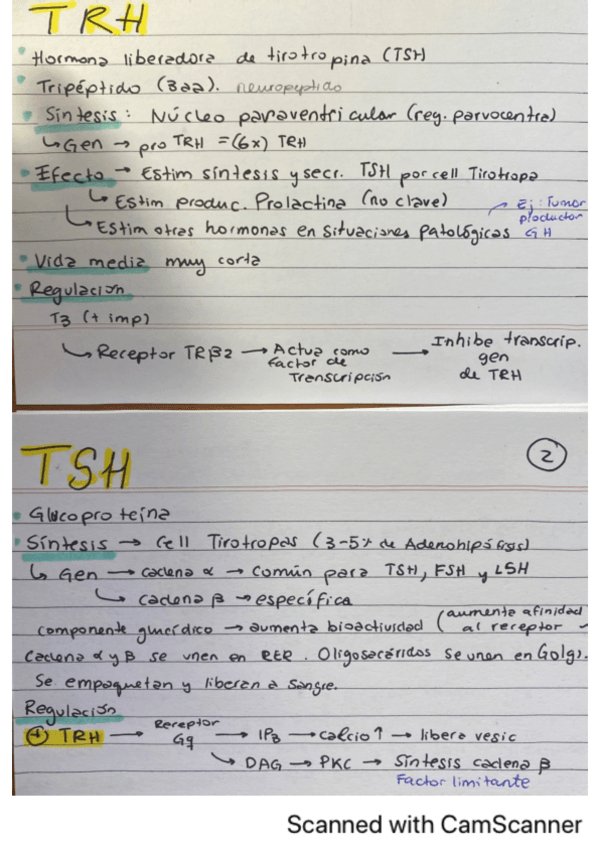 TRH
• Hormona liberadora de tirotropina (TSH)
• Tripéptido (3aa). neuropeptido
• Síntesis: Núcleo paraventricular (reg. parvocentral)
↳ Gen → pro TRH = (6x) TRH
• Efecto → Estim síntesis y secr. TSH por cell Tirotropa
↳ Estim produc. Prolactina (no clave)
↳ Estim otras hormonas en situaciones patológicas
→ Ej: Tumor
productor
GH
• Vida media muy corta
• Regulacion
T3 (+ imp)
↳ Receptor TRβ2 → Actua como Factor de Transcripción → Inhibe transcrip. gen de TRH
TSH
2
• Glucoproteína
• Síntesis → Cell Tirotropas (3-5% de Adenohipófisis)
↳ Gen → cadena α → Común para TSH, FSH y LSH
↳ cadena β → específica
componente glucídico → aumenta bioactividad (aumenta afinidad al receptor
Cadena α y B se unen en RER. Oligosacáridos se unen en Golgi.
Se empaquetan y liberan a sangre.
Regulación
(+) TRH → Receptor Gq → IP3 → calcio ↑ → libera vesic
↳ DAG → PKC → Síntesis cadena β
Factor limitante
Scanned with CamScanner